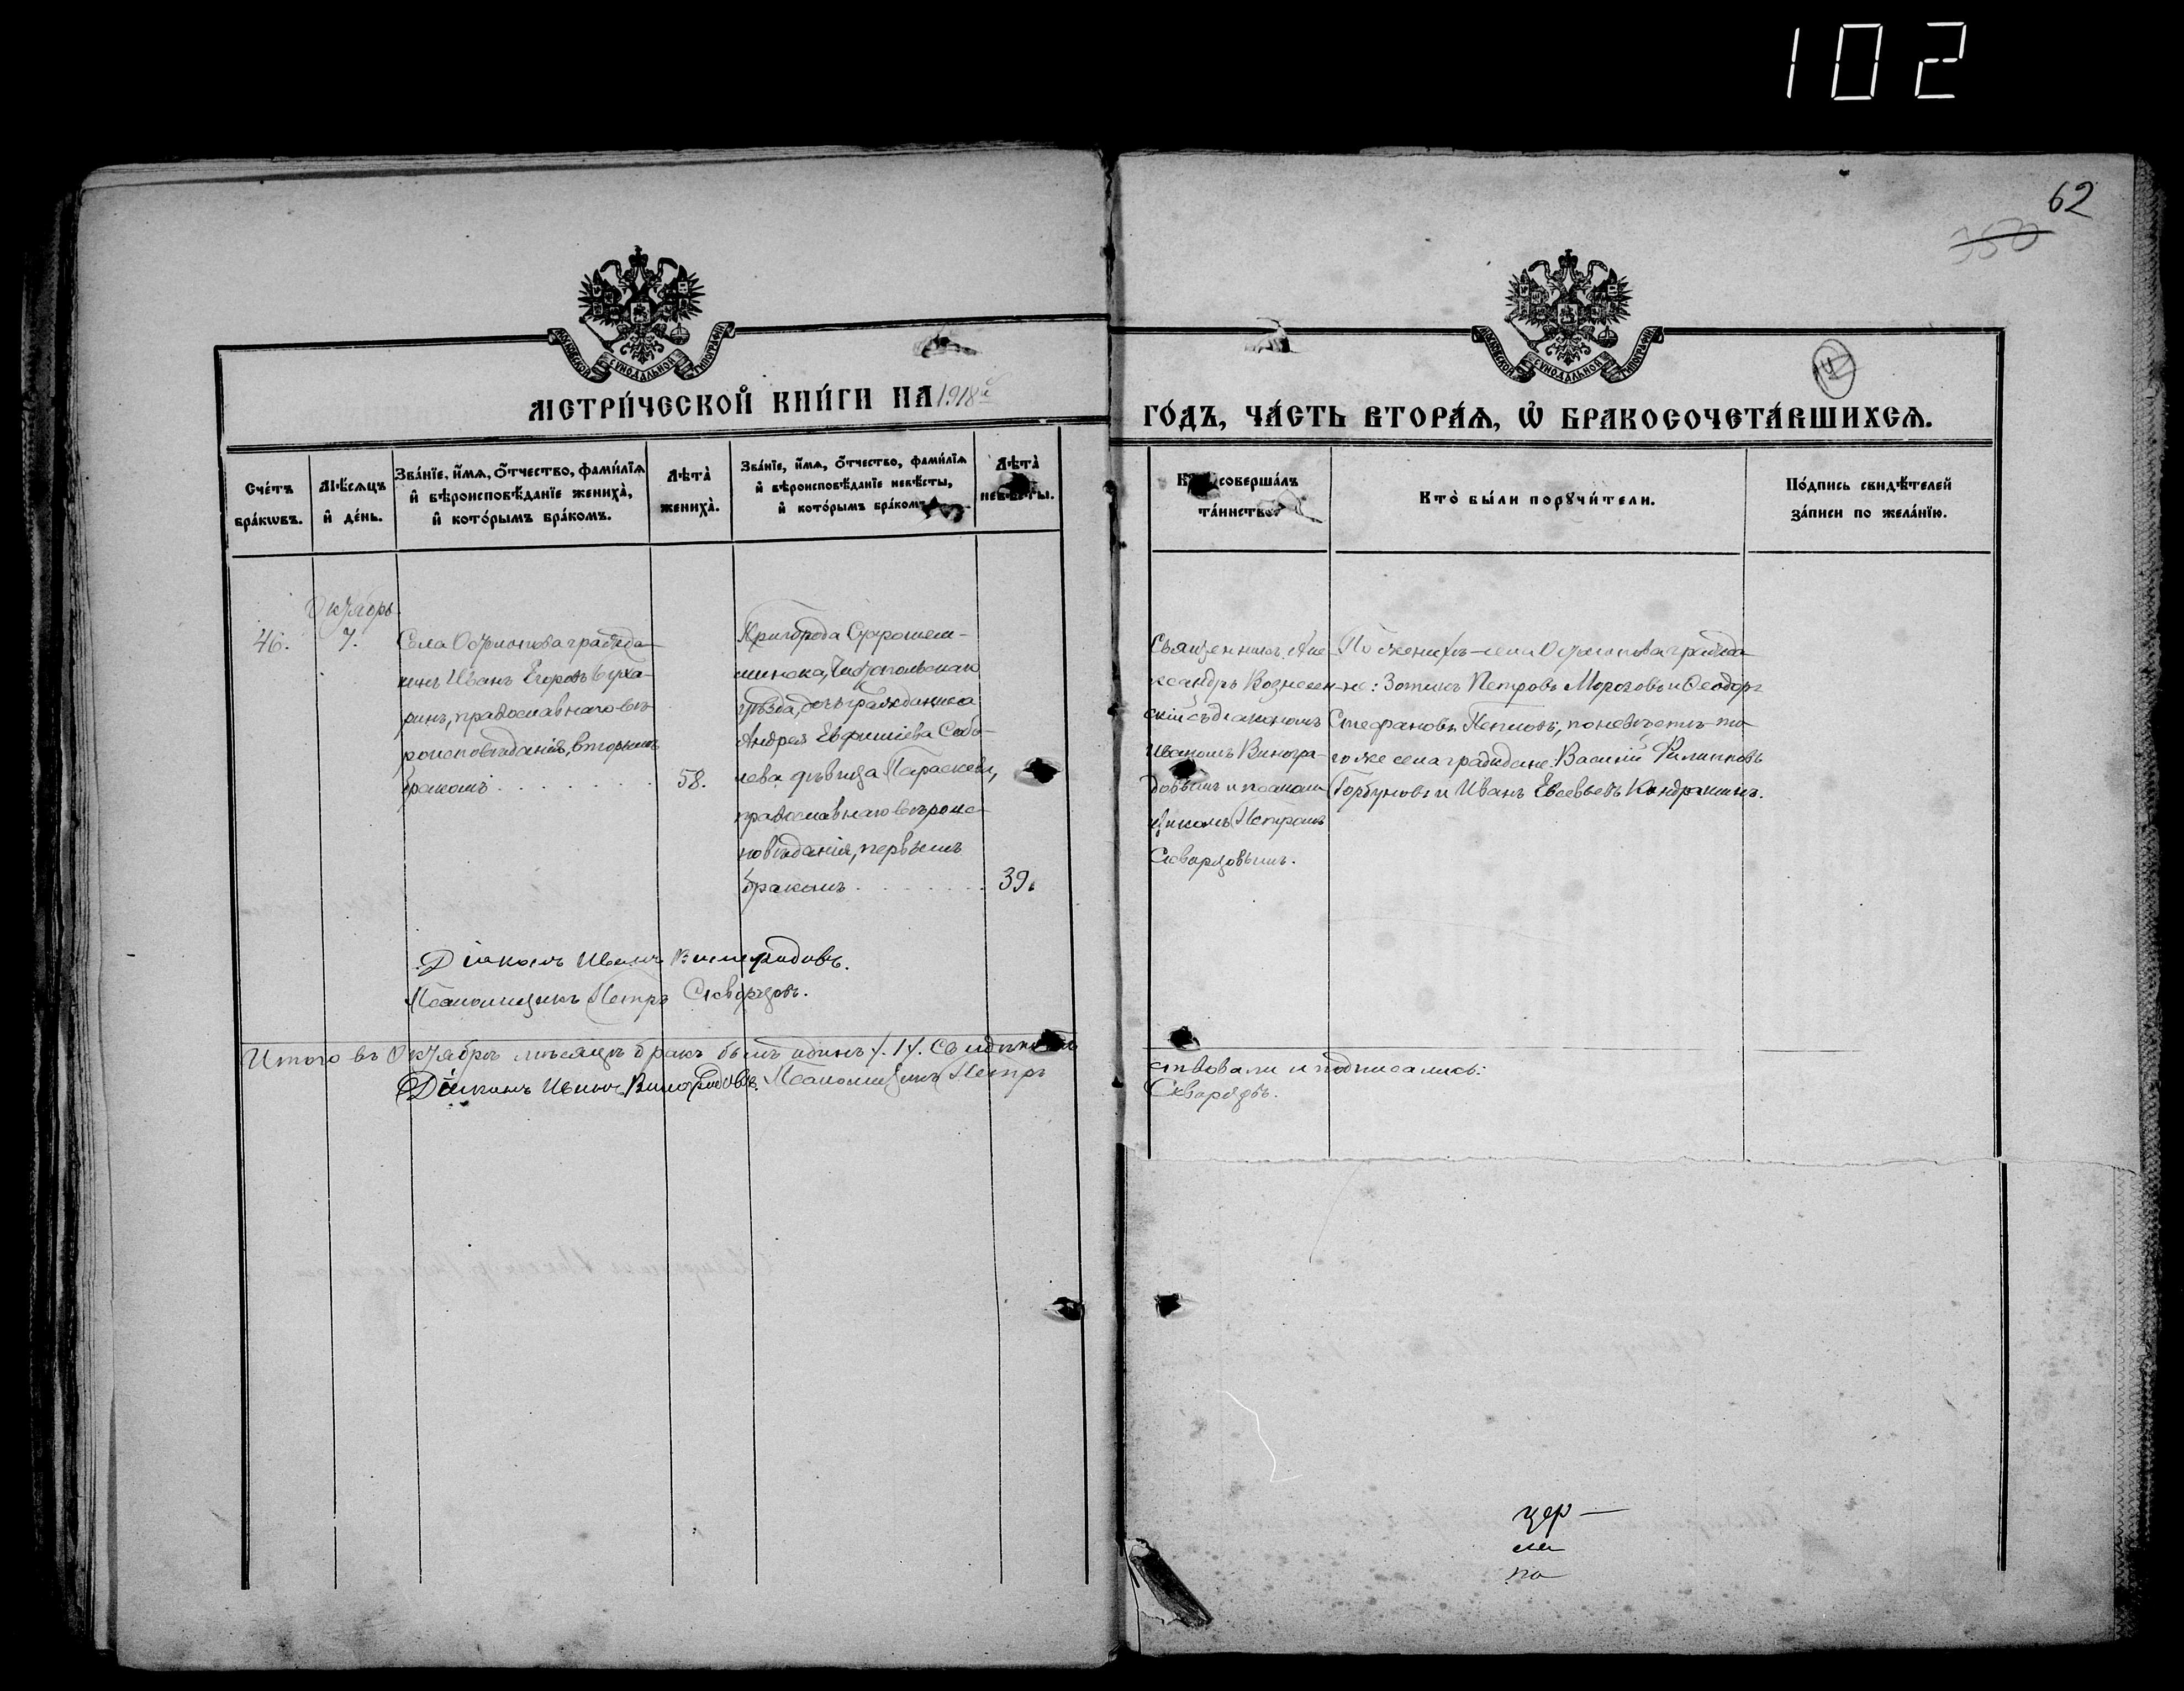 102
62
350
МОСКОВСКОЙ СѴНОДАЛЬНОЙ ТИПОГРАФІИ
МОСКОВСКОЙ СѴНОДАЛЬНОЙ ТИПОГРАФІИ
МЕТРИ́ЧЕСКОЙ КНИ́ГИ НА 1918й
ГО́ДЪ, ЧА́СТЬ ВТОРА́Ѧ, Ѽ БРАКОСОЧЕТА́ВШИХСѦ.
Сче́тъ бра́кѡвъ.
Мѣ́сѧцъ и҆ де́нь.
Зва́нїе, и҆́мѧ, ѻ҆́тчество, фами́лїѧ и҆ вѣроисповѣ́данїе жениха̀, и҆ кото́рымъ бра́комъ.
Лѣта̀ жениха̀.
Зва́нїе, и҆́мѧ, ѻ҆́тчество, фами́лїѧ и҆ вѣроисповѣ́данїе невѣ́сты, и҆ кото́рымъ бра́комъ.
Лѣта̀ невѣ́сты.
соверша́лъ та́инство.
Кто̀ бы́ли порꙋчи́тели.
По́дпись свидѣ́телей за́писи по жела́нїю.
Октябрь
46.
7.
Села гражда-
нинъ Иванъ Егоровъ
ринъ, православнаго вѣ-
роисповѣданія, вторымъ
бракомъ
58.
Пригорода Старошеш-
минска, Чистопольскаго
уѣзда, дочь гражданина
Андрея Евфиміева Собо-
лева дѣвица Параскева,
православнаго вѣроис-
повѣданія, первымъ
бракомъ
39.
Священникъ Але-
ксандръ Вознесен-
скій съ діакономъ
Иваномъ Виногра-
довымъ и псалом-
щикомъ Петромъ
Скворцовымъ.
По женихѣ - села гражда-
не: Зотикъ Петровъ Морозовъ и Ѳеодоръ
Стефановъ по невѣстѣ - то-
го же села граждане: Василій Филипповъ
Горбуновъ и Иванъ Евсевьевъ Кондрашинъ.
Діаконъ Иванъ Виноградовъ.
Псаломщикъ Петръ Скворцовъ.
Итого въ Октябрѣ мѣсяцѣ бракъ былъ одинъ /.1/.
ствовали и подписались:
Діаконъ Иванъ Виноградовъ. Псаломщикъ Петръ
Скворцовъ.
цер-
по